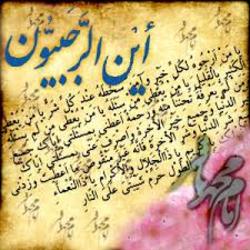 أين الرَّجَبيّون
يا من أرجوه لكل خير وآمن سخطه عند كل شر يا من يعطي
الكثير بالقليل يا من يعطي من سئله يا من يعطي من لم يسئله
ومن لم يعرفه تحننا منه ورحمة أعطني بمسئلتي إياك جميع خير
الدنيا وجميع خير الآخرة واصرف عني بمسئلتي إياك
جميع شر الدنيا وشر الآخرة فإنه غير منقوص ما أعطيت وزدني
يا ذا الجلال والإكرام يا ذا النعماء
والطول حرم شيبتي على النار
امام محمد